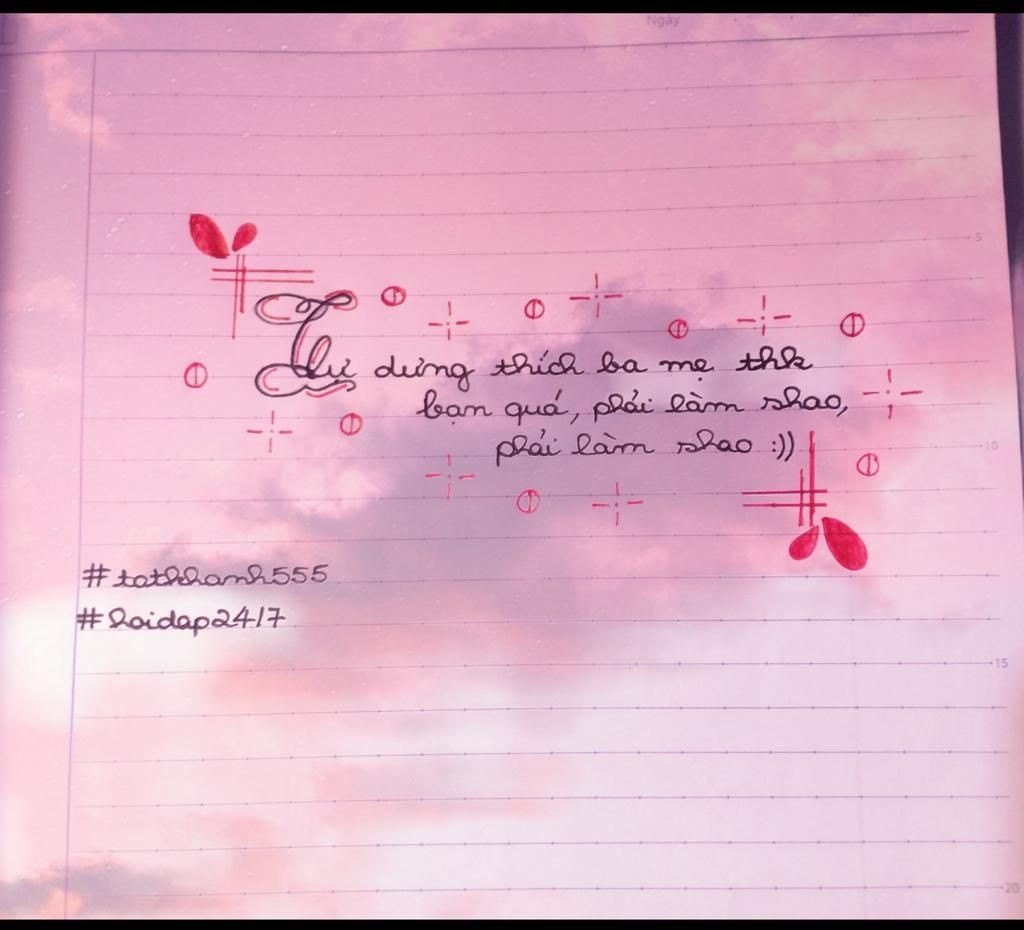 Ngày
Tự dưng thích ba mẹ thk
bạn quá, phải làm shao,
phải làm shao :))
#tathkhanh555
#hoidap24/7
5
10
15
20